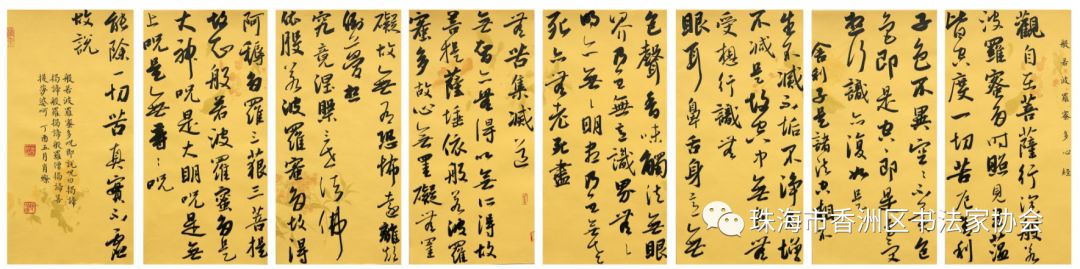 般若波羅蜜多心經
觀自在菩薩行深般若
波羅蜜多時照見五蘊
皆空度一切苦厄舍利
子色不異空空不異色
色即是空空即是色受
想行識亦復如是
舍利子是諸法空相不
生不滅不垢不淨不增
不減是故空中無色無
受想行識無
眼耳鼻舌身意無
色聲香味觸法無眼
界乃至無意識界無無
明亦無無明盡乃至無老
死亦無老死盡
無苦集滅道
無智亦無得以無所得故
菩提薩埵依般若波羅
蜜多故心無罣礙無罣
礙故無有恐怖遠離顛
倒夢想
究竟涅槃三世諸佛
依般若波羅蜜多故得
阿耨多羅三藐三菩提
故知般若波羅蜜多是
大神咒是大明咒是無
上咒是無等等咒
能除一切苦真實不虛
故說
般若波羅蜜多咒即說咒曰揭諦
揭諦般羅揭諦般羅僧揭諦菩
提莎婆呵 丁酉五月肖
珠海市香洲区书法家协会